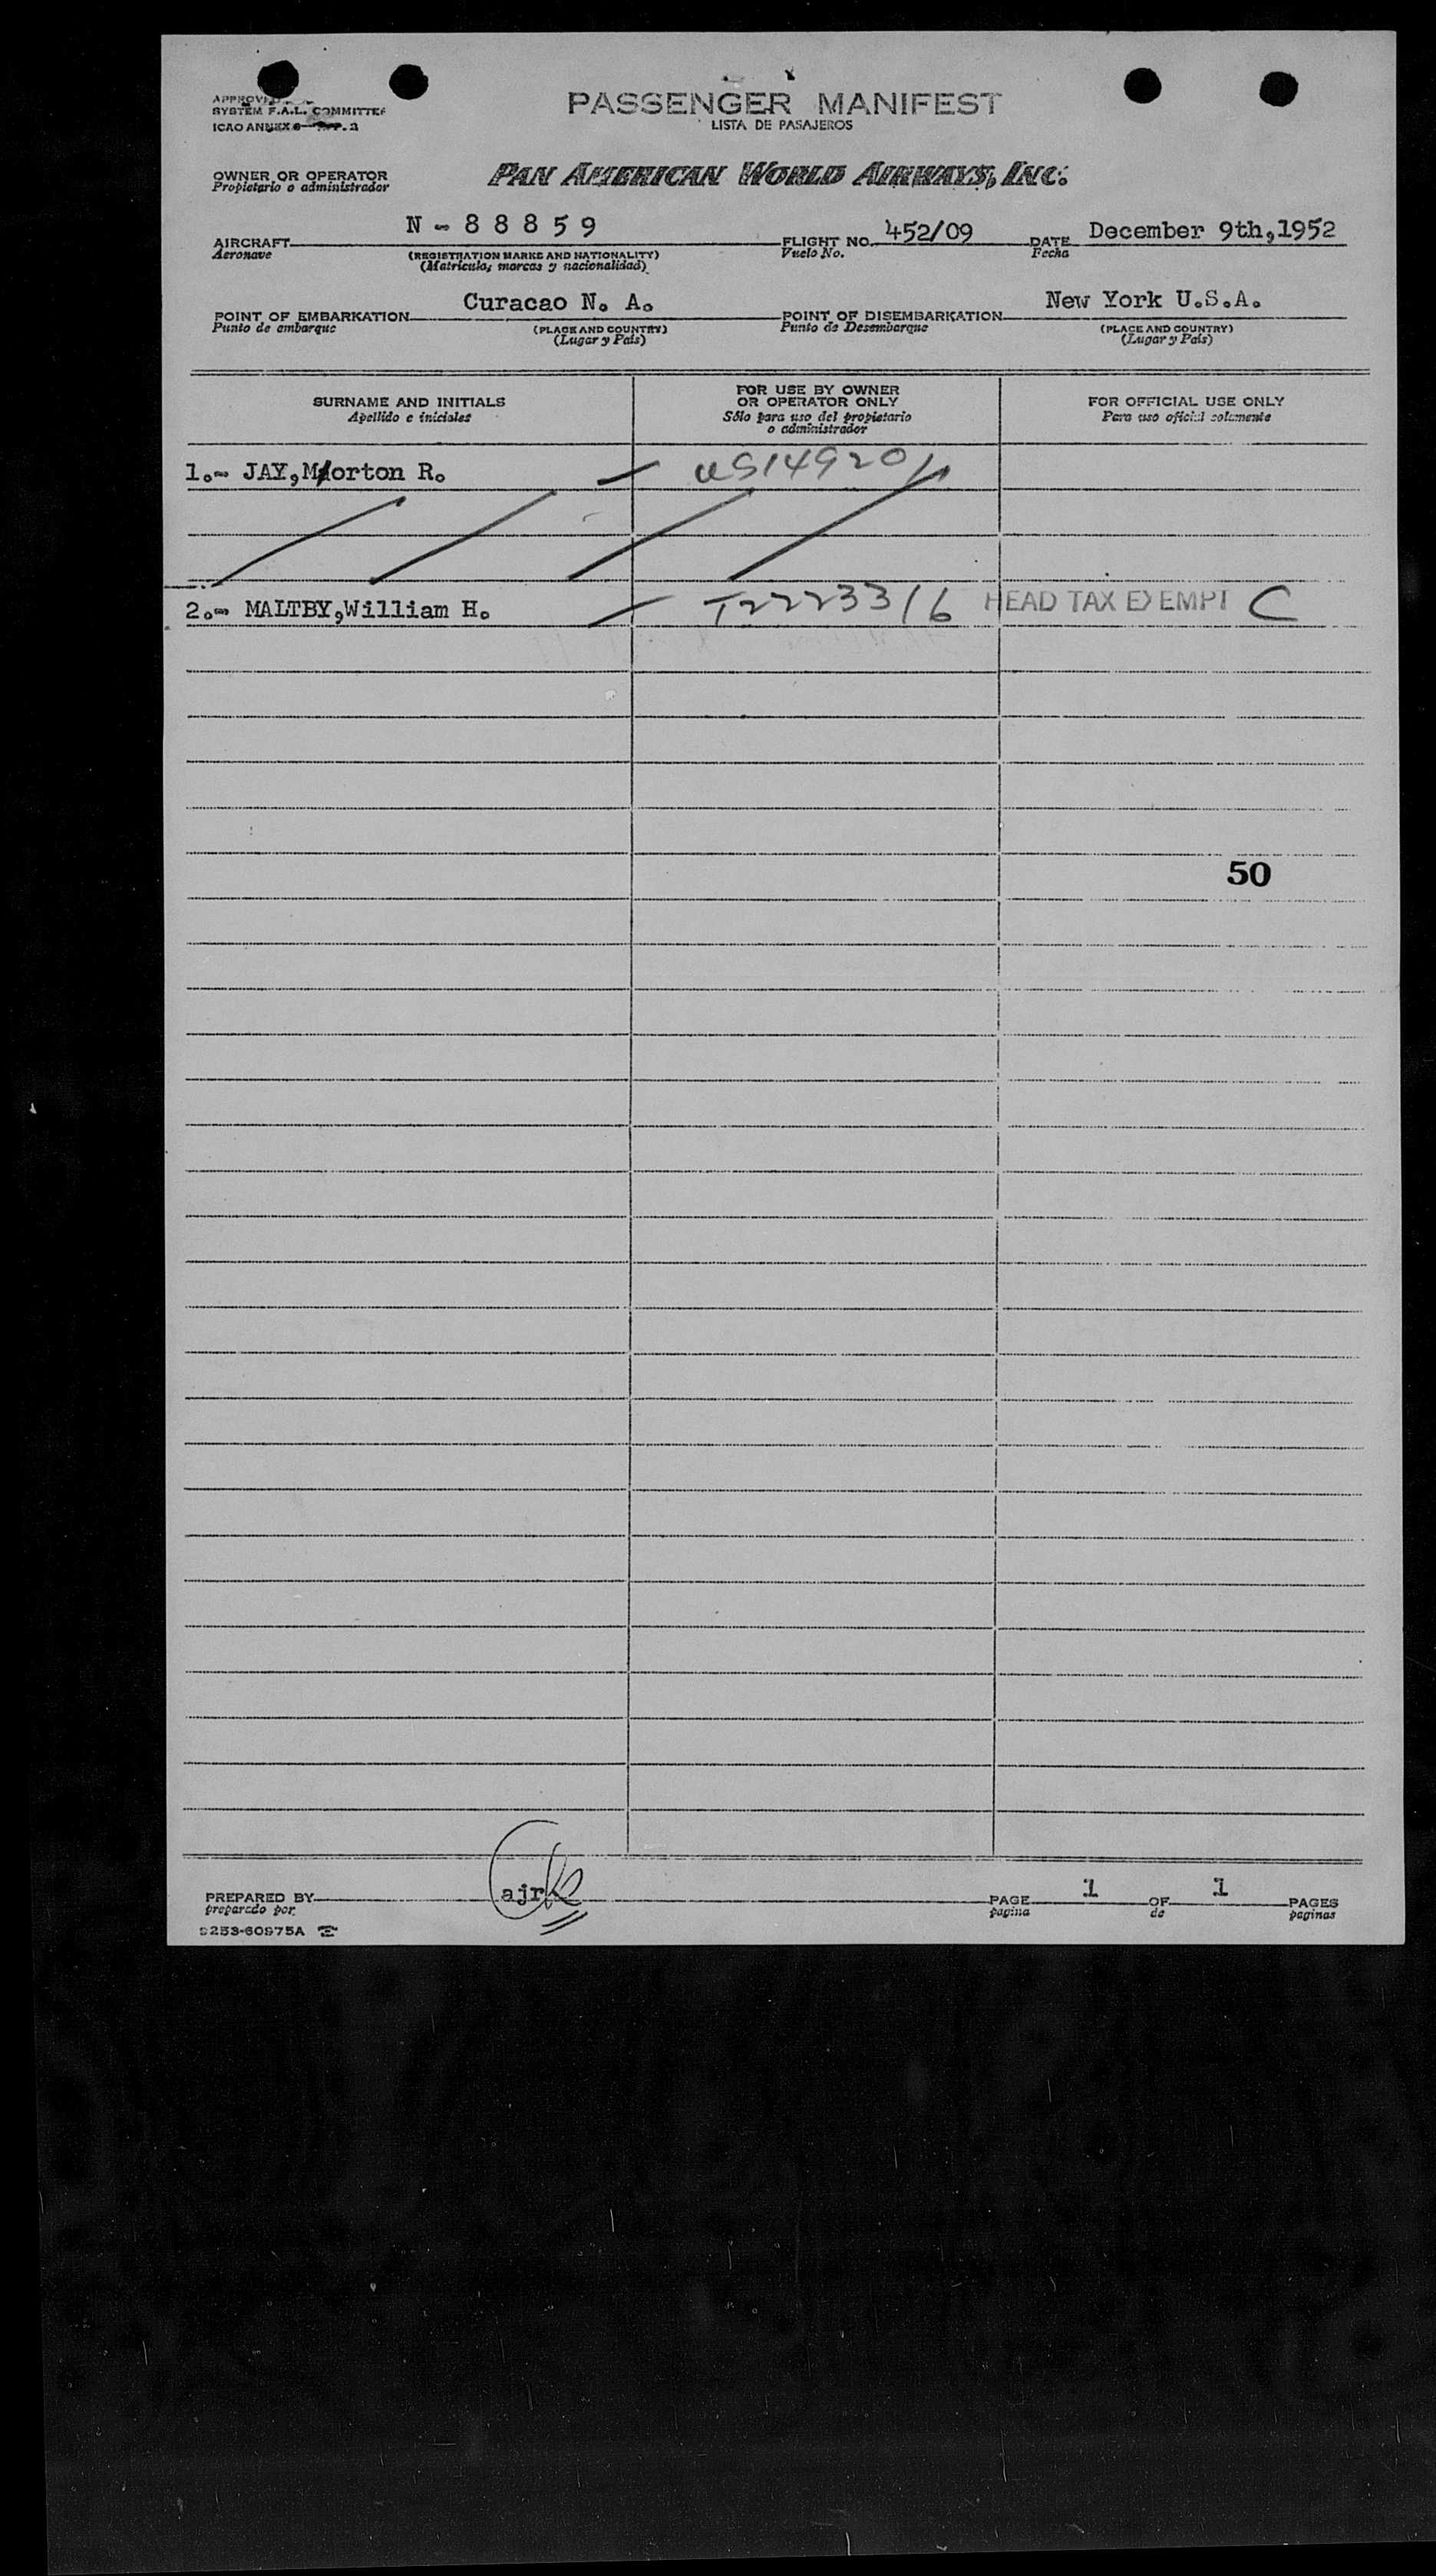 APPROVED
SYSTEM F.A.L. COMMITTEE
ICAO ANNEX
PASSENGER MANIFEST
LISTA DE PASAJEROS
OWNER OR OPERATOR
Propietario o administrador
PAN AMERICAN WORLD AIRWAYS, INC.
AIRCRAFT N - 8 8 8 5 9 FLIGHT NO. 452/09 DATE December 9th,1952
Aeronave (REGISTRATION MARKS AND NATIONALITY) Vuelo No. Fecha
(Matricula, marcas y nacionalidad)
POINT OF EMBARKATION Curacao N. A. POINT OF DISEMBARKATION New York U.S.A.
Punto de embarque (PLACE AND COUNTRY) Punto de Desembarque (PLACE AND COUNTRY)
(Lugar y País) (Lugar y País)
SURNAME AND INITIALS
Apellido e iniciales
FOR USE BY OWNER
OR OPERATOR ONLY
Sólo para uso del propietario
o administrador
FOR OFFICIAL USE ONLY
Para uso oficial solamente
1.- JAY,Morton R.
2.- MALTBY,William H. T2223316 HEAD TAX EXEMPT C
50
PREPARED BY ajr PAGE 1 OF 1 PAGES
preparado por pagina de paginas
9253-60975A